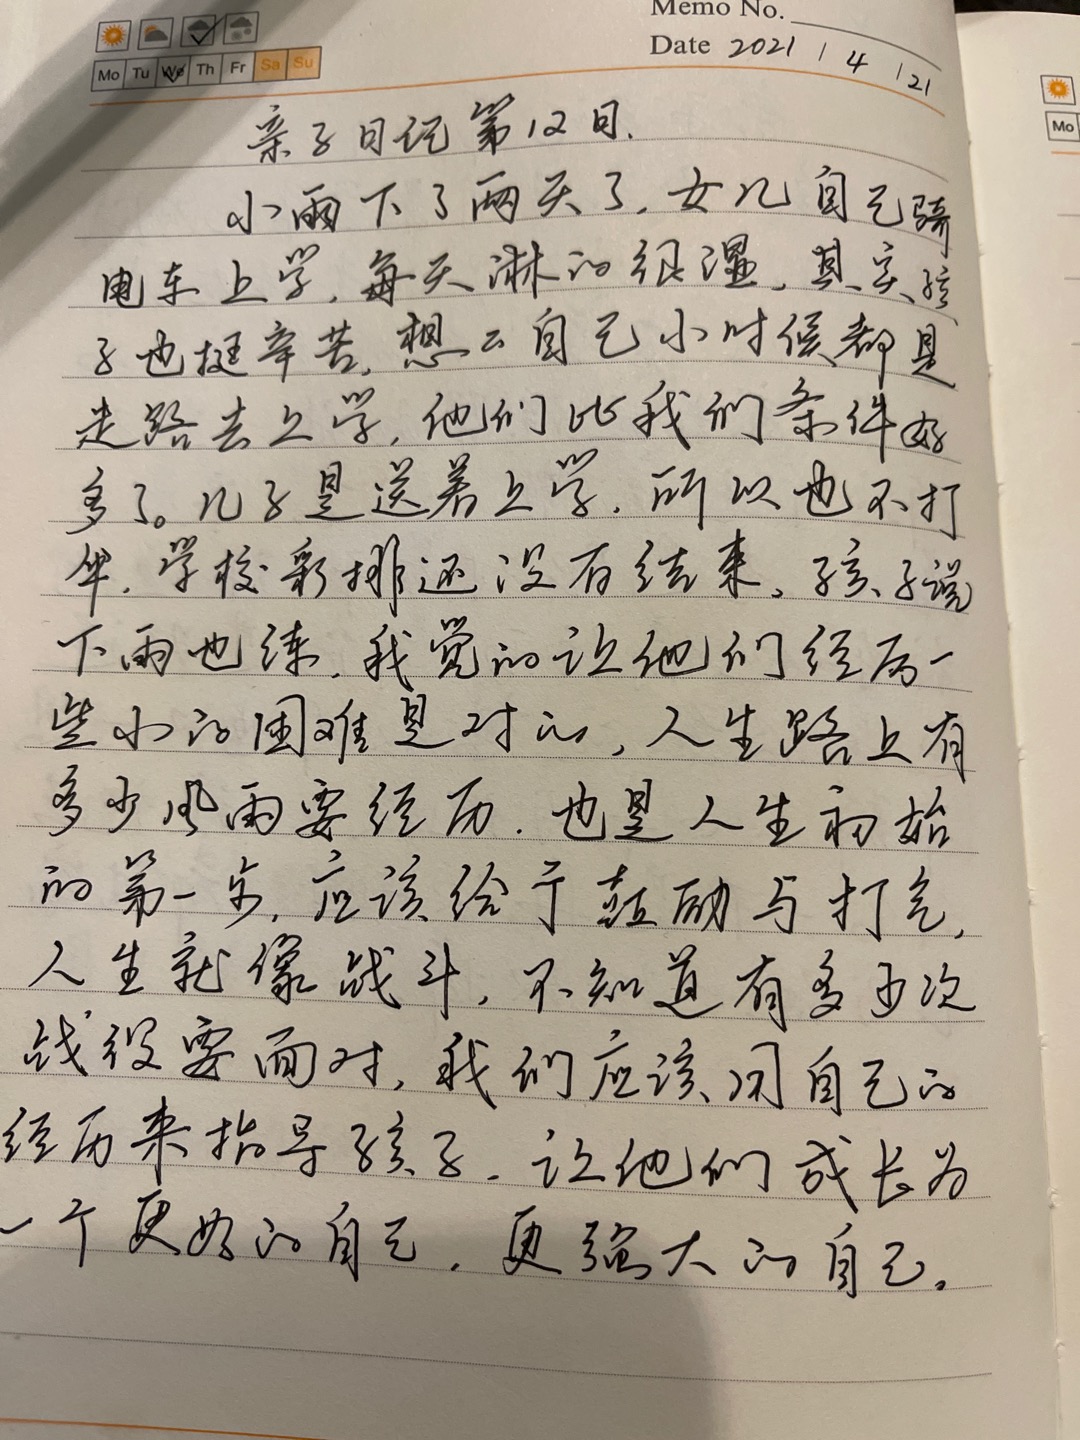 Memo No.
Mo Tu We Th Fr Sa Su
Date 2021 / 4 / 21
亲子日记第12日.
小雨下了两天了,女儿自己骑
电车上学,每天淋的很湿,其实孩
子也挺辛苦,想想自己小时候都是
走路去上学,他们比我们条件好
多了。儿子是送着上学,所以也不打
伞,学校彩排还没有结束。孩子说
下雨也练,我觉的让他们经历一
些小的困难是对的,人生路上有
多少风雨要经历.也是人生初始
的第一步,应该给于鼓励与打气,
人生就像战斗,不知道有多少次
战役要面对,我们应该用自己的
经历来指导孩子.让他们成长为
一个更好的自己,更强大的自己。
Mo